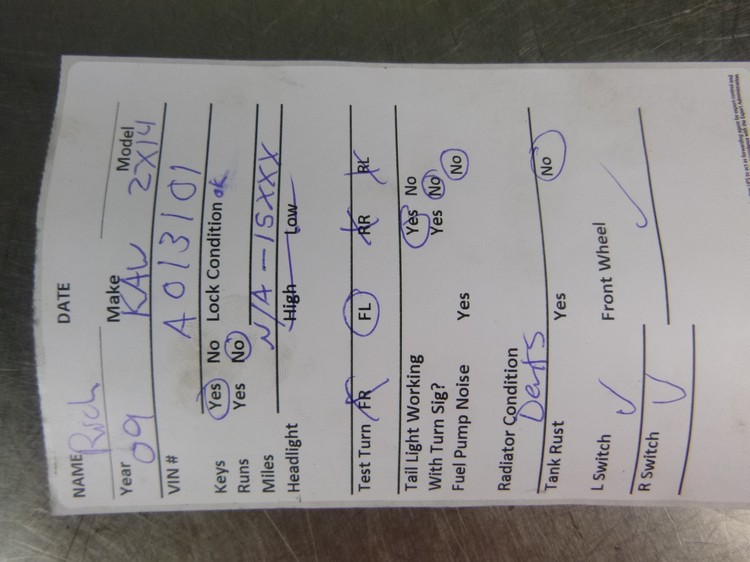 NAME Rich DATE
Year 09 Make KAW Model ZX14
VIN # A013101
Keys Yes No Lock Condition ok
Runs Yes No
Miles N/A - 15XXX
Headlight High Low
Test Turn FR FL RR RL
Tail Light Working Yes No
With Turn Sig? Yes No
Fuel Pump Noise Yes No
Radiator Condition
Dents
Tank Rust Yes No
L Switch ✓ Front Wheel ✓
R Switch ✓